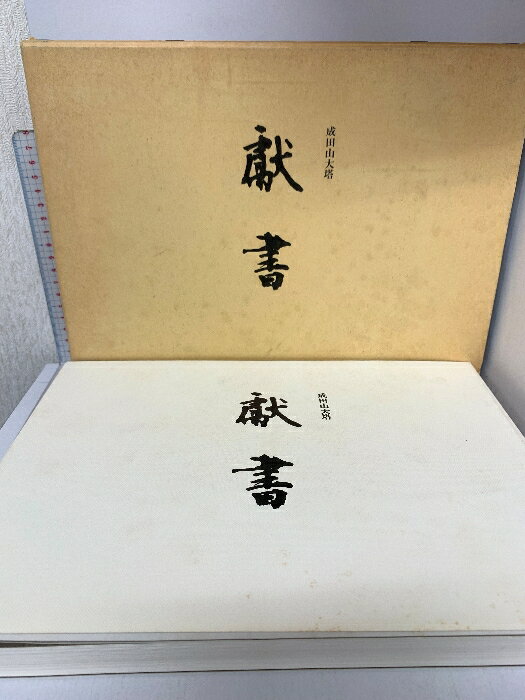 成田山大塔
献書
成田山大塔
献書